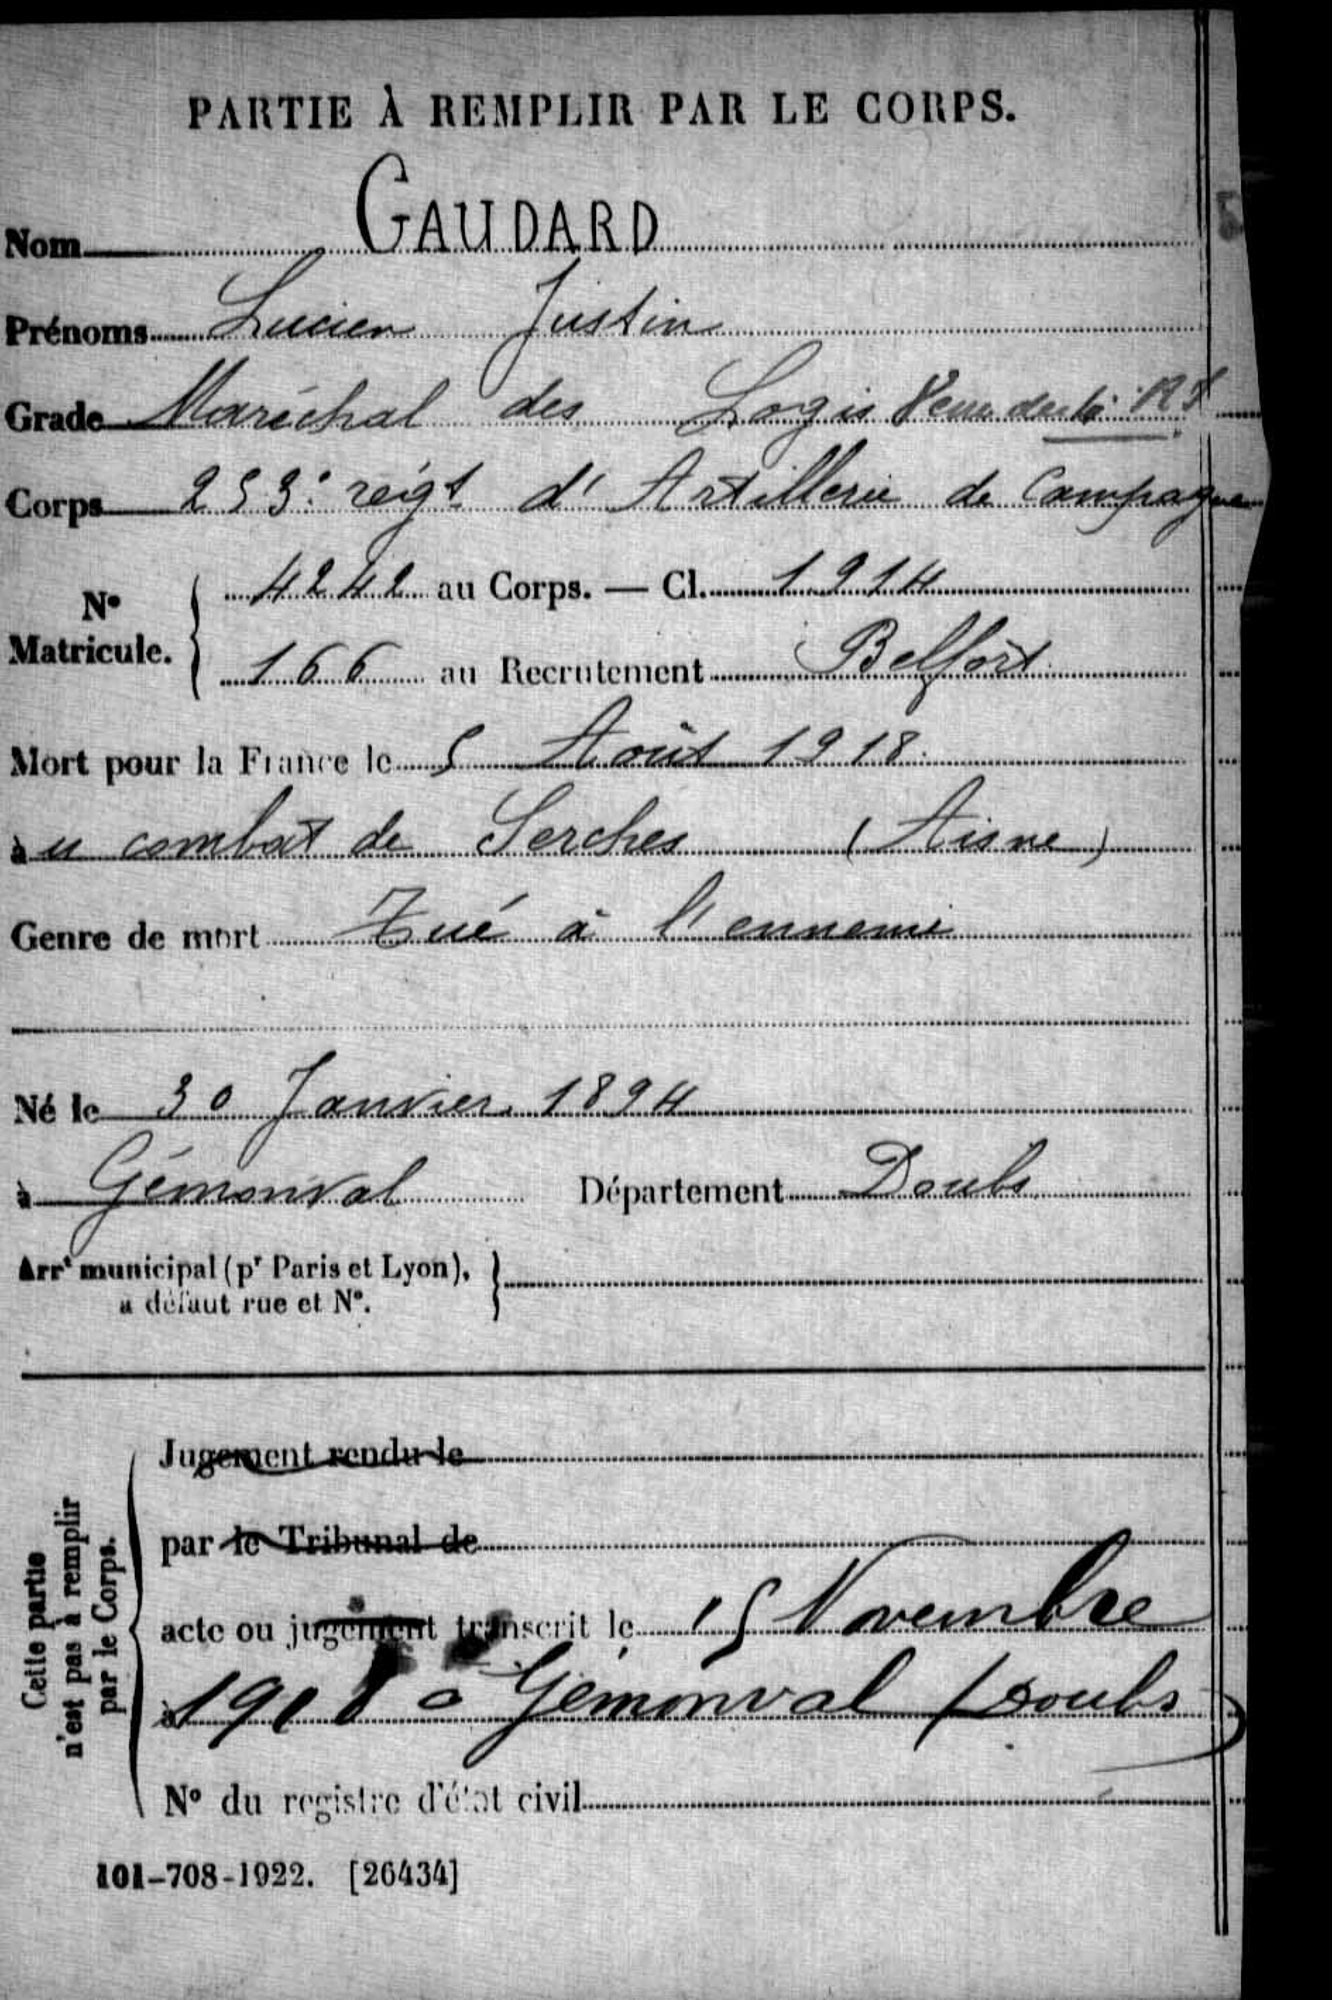 PARTIE À REMPLIR PAR LE CORPS.
Nom GAUDARD
Prénoms Lucien Justin
Grade Maréchal des Logis
Corps 253e régt d'Artillerie de Campagne
N° Matricule. 4242 au Corps. — Cl. 1914
166 au Recrutement Belfort
Mort pour la France le 5 Août 1918
au combat de Serches (Aisne)
Genre de mort Tué à l'ennemi
Né le 30 Janvier 1894
à Gémonval Département Doubs
Arrt municipal (pr Paris et Lyon),
à défaut rue et N°.
Cette partie
n'est pas à remplir
par le Corps.
Jugement rendu le
par le Tribunal de
acte ou jugement transcrit le 15 Novembre
1918 à Gémonval (Doubs)
N° du registre d'état civil
101-708-1922. [26434]